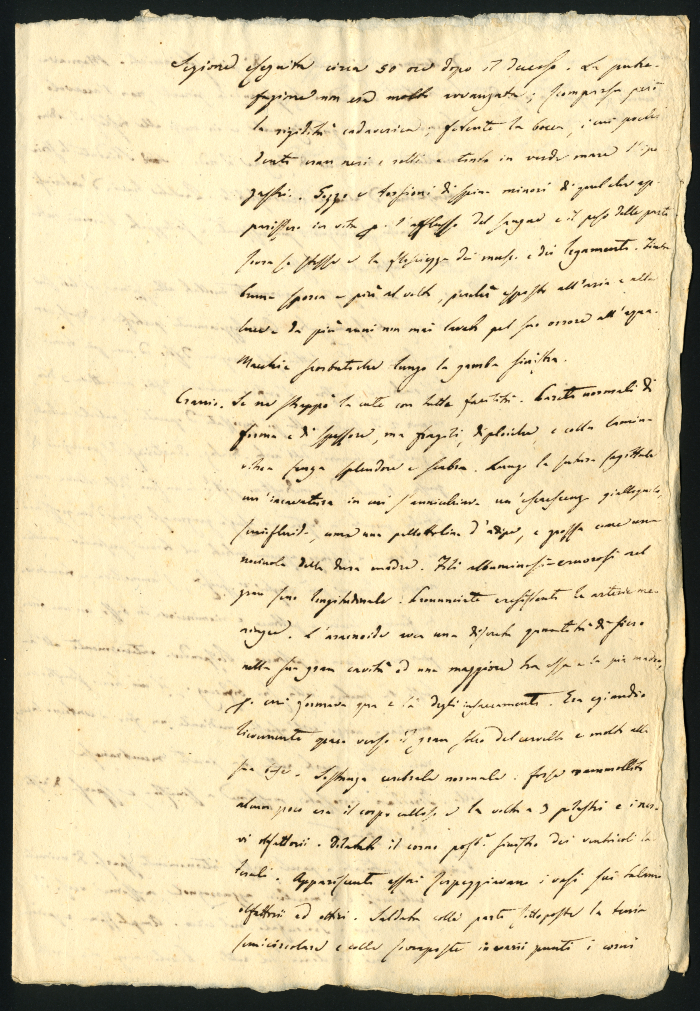 Sezione eseguita circa 50 ore dopo il decesso. La putre-
fazione non era molto avvanzata; scomparsa però
la rigidità cadaverica; fetente la bocca, i cui pochi
denti eran neri e solli e tinto in verde mare l'ipo
gastri. Gozzo e torsioni di spina minori di quel che ap-
parissero in vita p. l'afflusso del sangue e il peso delle parti
sovra se stesse e la flosciezza dei musc. e dei legamenti. Tinta
bruna sporca e più al volto, perchè esposto all'aria e alla
luce e da più anni non mai lavato pel suo orrore all'acqua.
Macchie scorbutiche lungo la gamba sinistra.
Cranio. Se ne strappò la cute con tutta facilità. Pareti normali di
forma e di spessore, ma fragili, diploiche e colla lamina
vitrea senza splendore e scabra. Lungo la sutura sagittale
un'incavatura in cui s'annicchiava un'escrescenza giallognola,
semifluida, come una pallottolina d'adipe, e grossa come una
nocciuola della dura madre. Fili albuminosi-cruorosi nel
gran seno longitudinale. Pronunciate e resistenti le arterie me-
ningee. L'aracnoide avea una discreta quantità di siero
nella sua gran cavità ed una maggiore tra essa e la pia madre,
p. cui formava qua e là degli insaccamenti. Era eziandio
lievemente opaca verso il gran solco del cervello e molto alla
sua base. Sostanza cerebrale normale. Forse rammollito
alcun poco era il corpo calloso e la volta a 3 pilastri e i ner-
vi olfattorii. Dilatato il corno post. sinistro dei ventricoli la-
terali. Appariscenti assai serpeggiavano i vasi sui talami
olfattorii ed ottici. Saldata colle parti sottoposte la tenia
semicircolare e colle scomposte in varii punti i corni